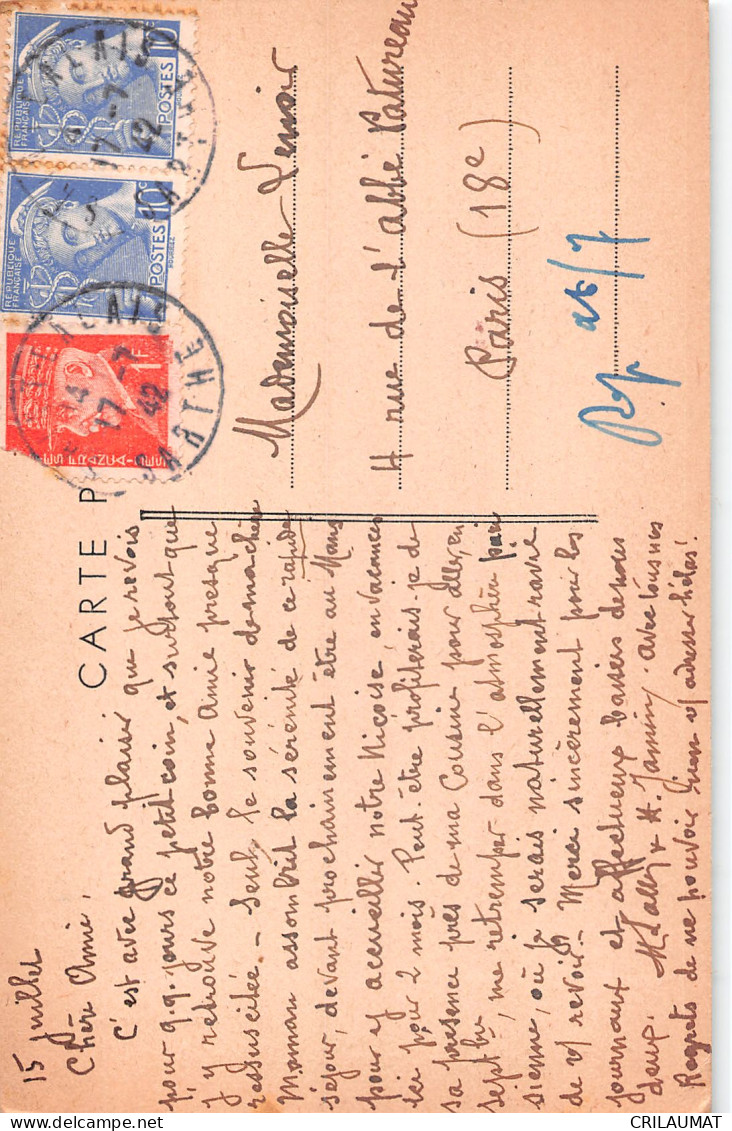 CARTE P
15 juillet
Chère Amie,
C'est avec grand plaisir que je revois
pour q.q. jours ce petit coin, et surtout que
j'y retrouve notre bonne Amie presque
ressuscitée - Seul, le souvenir de ma chère
Maman assombrit la sérénité de ce rapide
séjour, devant prochainement être au Mans
pour y accueillir notre Niçoise, en vacances
ici pour 2 mois. Peut-être profiterais-je de
sa présence près de ma Cousine pour aller, en
septbre, me retremper dans l'atmosphère pari
sienne, où je serais naturellement ravie
de vs revoir - Merci sincèrement pour les
journaux et affectueux baisers de nous
deux. H. Jamin, avec tous nos
Regrets de ne pouvoir vs adresser hélas!
Mademoiselle Lenoir
4 rue de l'abbé Patureau
Paris (18e)
Rep 26/7
REPUBLIQUE FRANÇAISE
POSTES
10c
17 -7
42
SARTHE
REPUBLIQUE FRANÇAISE
POSTES
10c
1F
17 -7
42
SARTHE
CRILAUMAT